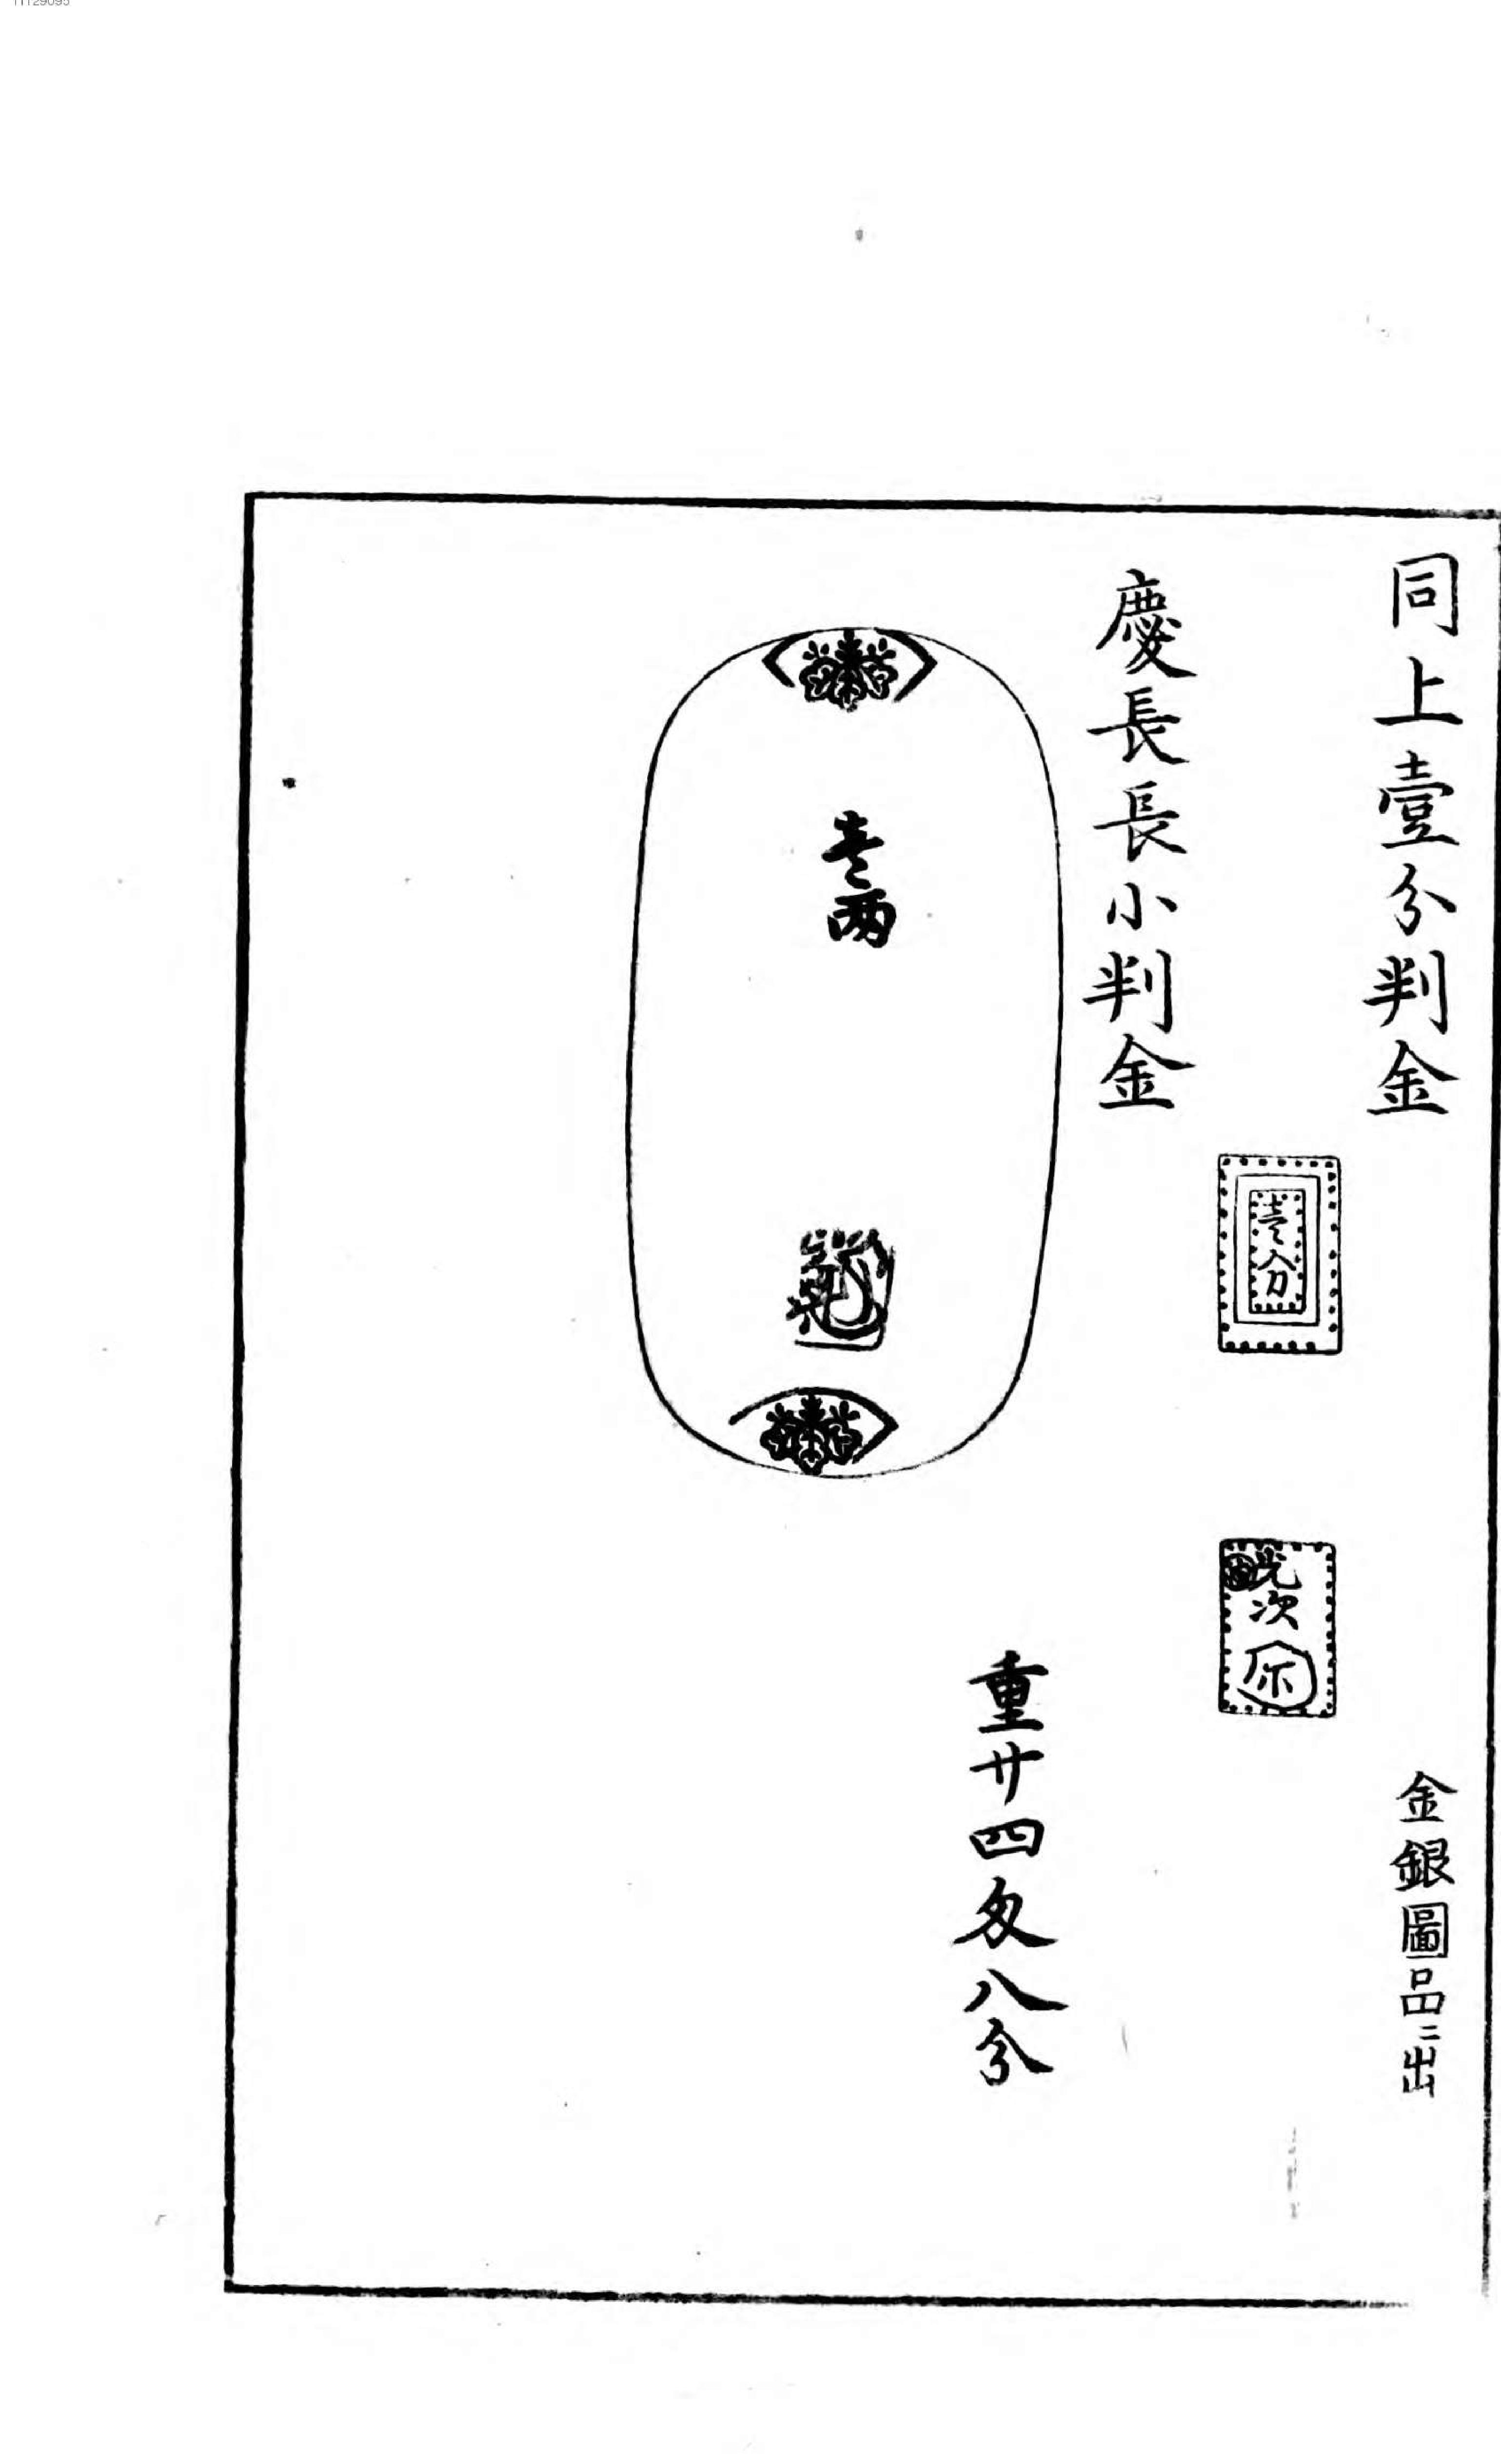 同上壹分判金
金銀圖品ニ出
壹分
光次
慶長長小判金
壹両
重廿四匁八分